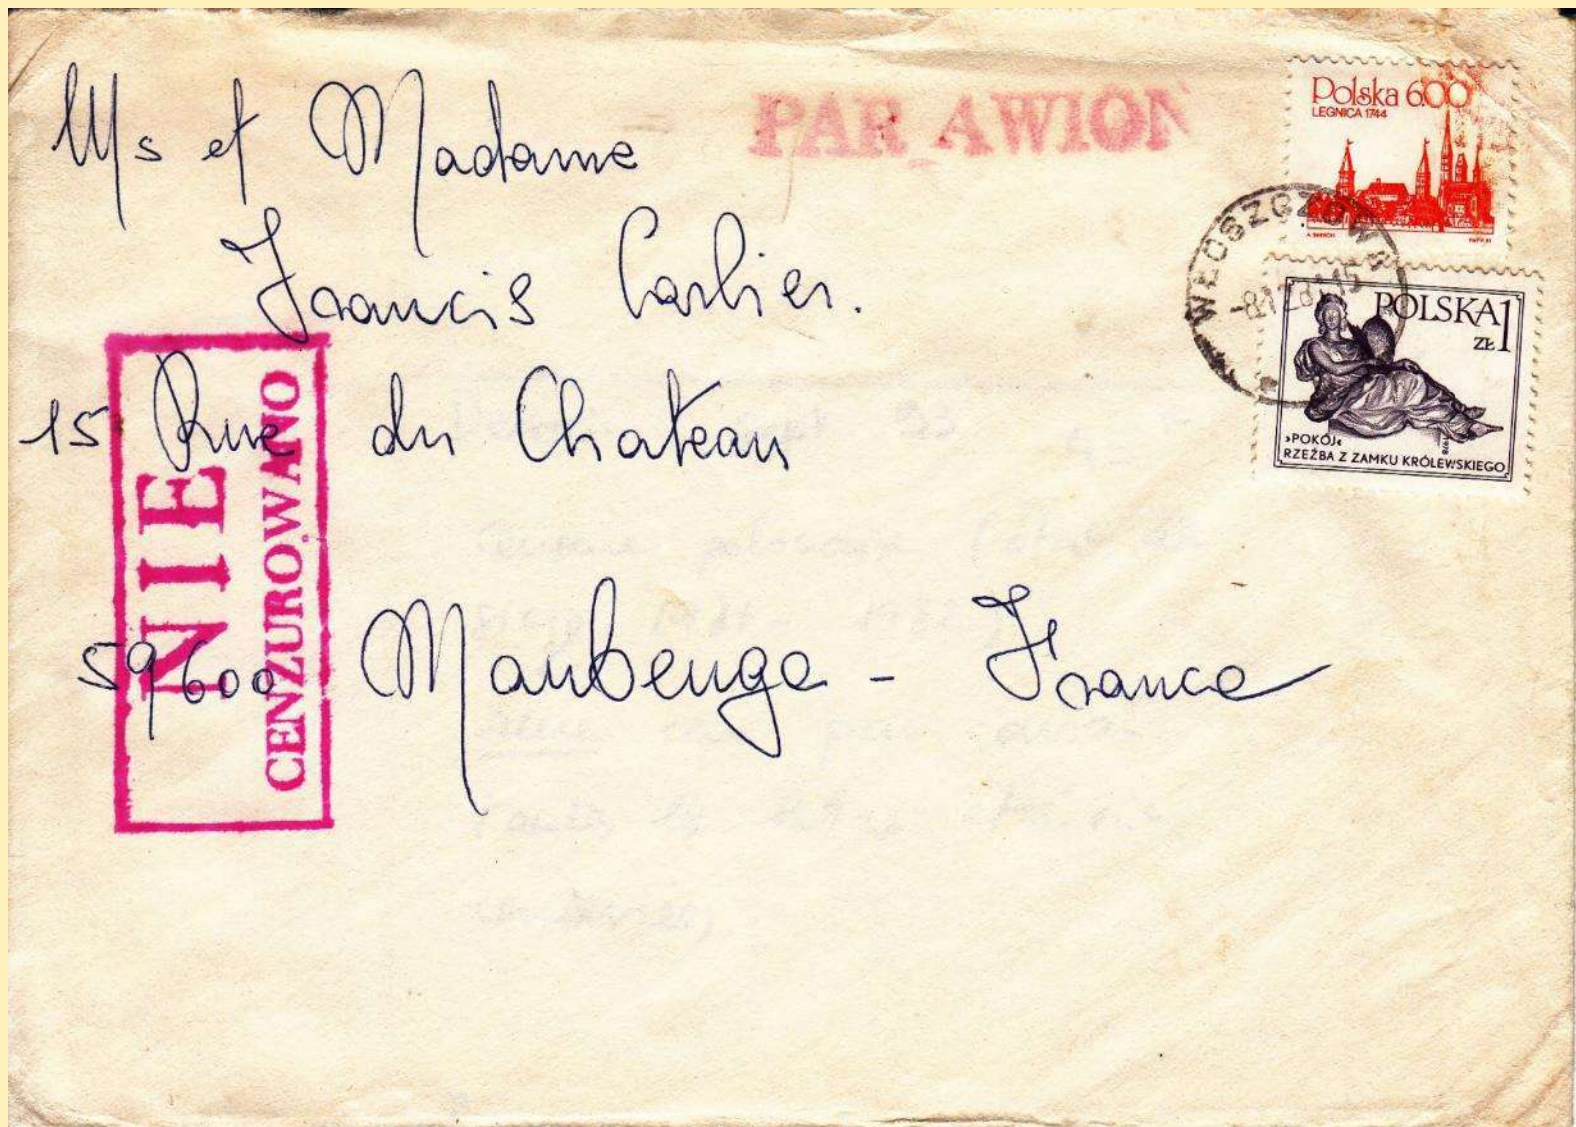 Ms et Madame
Francis Carlier.
15 Rue du Chateau
59600 Maubeuge - France
PAR AWION
NIE
CENZUROWANO
Polska 6.00
LEGNICA 1744
WŁOSZCZOWA
POLSKA 1
ZŁ
»POKÓJ«
RZEŹBA Z ZAMKU KRÓLEWSKIEGO
1978